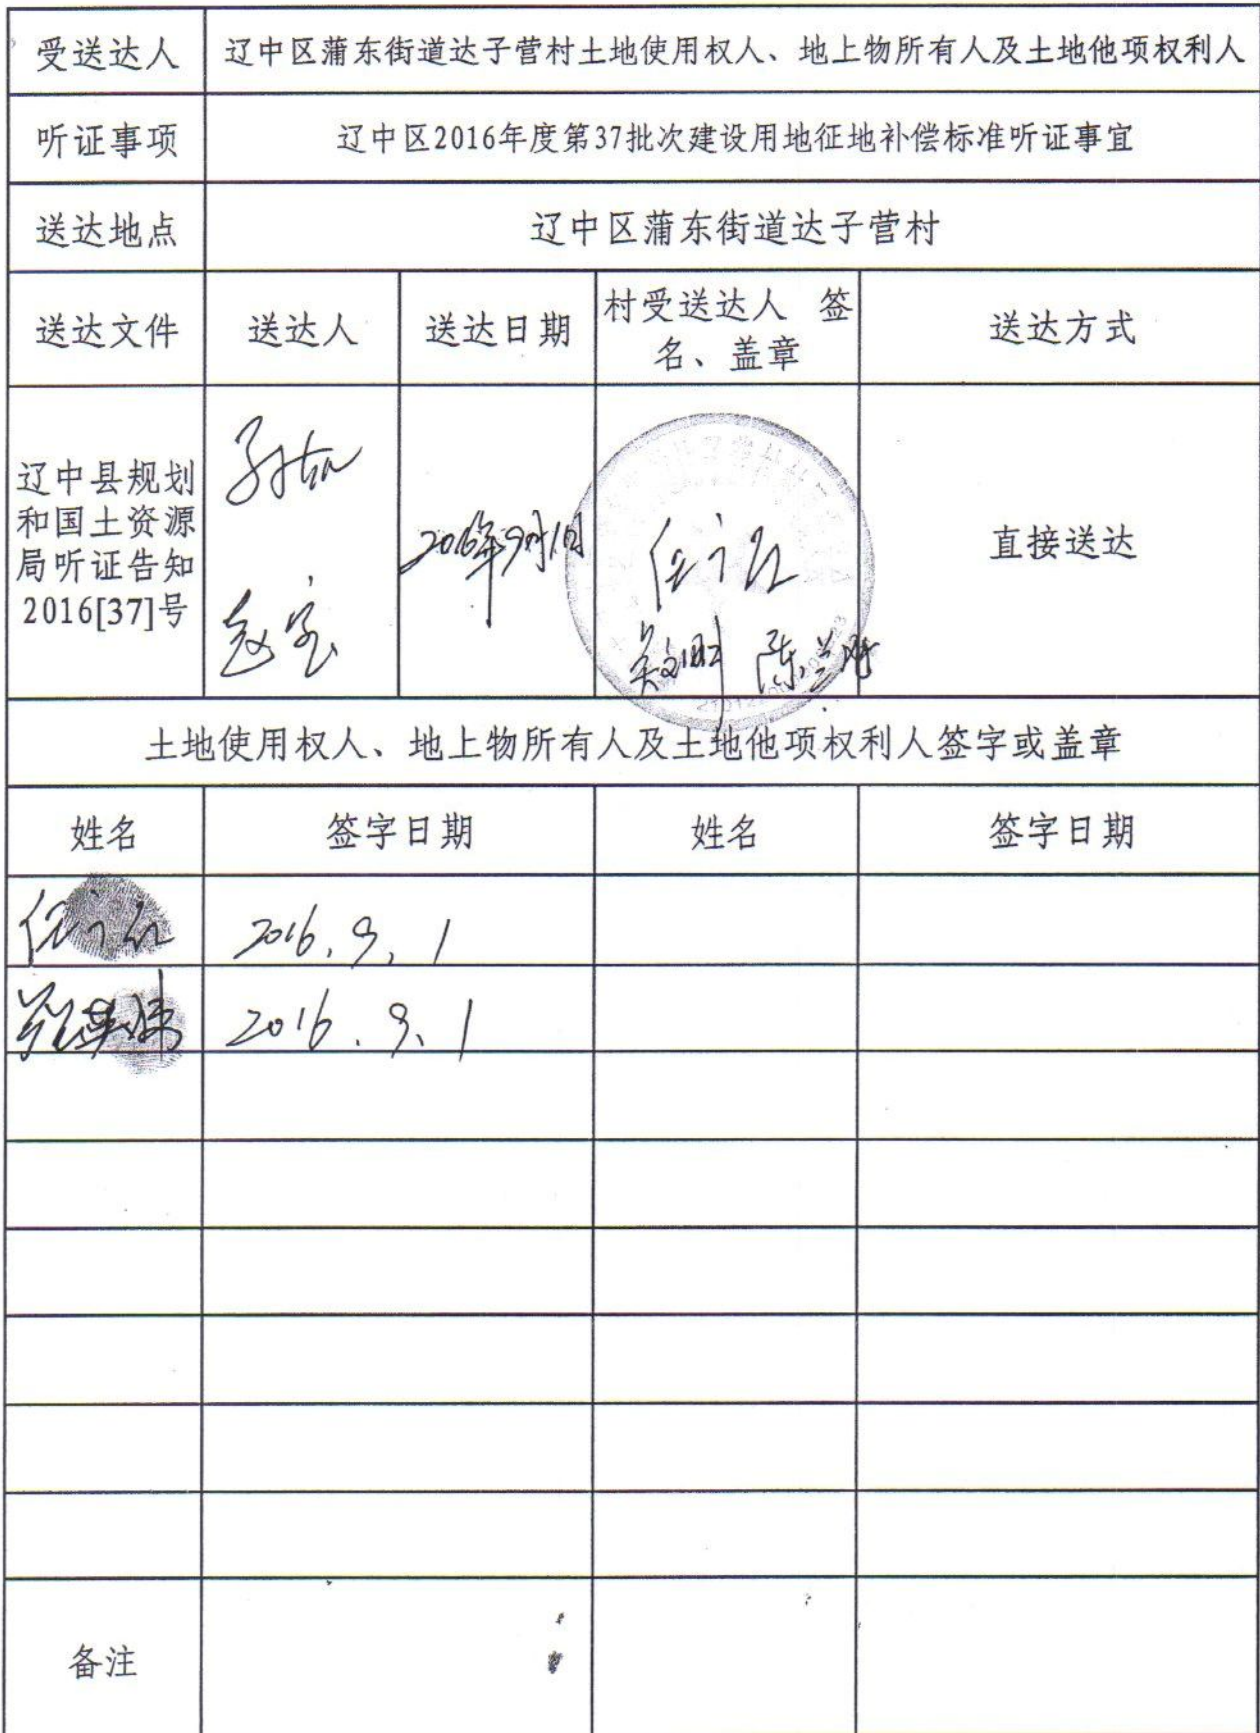 受送达人 辽中区蒲东街道达子营村土地使用权人、地上物所有人及土地他项权利人
听证事项 辽中区2016年度第37批次建设用地征地补偿标准听证事宜
送达地点 辽中区蒲东街道达子营村
送达文件 送达人 送达日期 村受送达人 签
名、盖章 送达方式
辽中县规划
和国土资源
局听证告知
2016[37]号
2016年9月1日
直接送达
土地使用权人、地上物所有人及土地他项权利人签字或盖章
姓名 签字日期 姓名 签字日期
2016.9.1
2016.9.1
备注